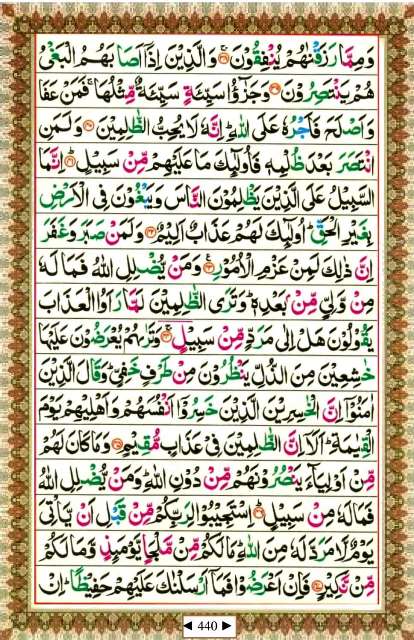 وَمِمَّا رَزَقْنٰهُمْ يُنْفِقُوْنَ ۚ﴿۳۸﴾ وَالَّذِيْنَ اِذَاۤ اَصَابَهُمُ الْبَغْيُ
هُمْ يَنْتَصِرُوْنَ ﴿۳۹﴾ وَجَزٰٓؤُا سَيِّئَةٍ سَيِّئَةٌ مِّثْلُهَا ۚ فَمَنْ عَفَا
وَاَصْلَحَ فَاَجْرُهٗ عَلَى اللّٰهِ ؕ اِنَّهٗ لَا يُحِبُّ الظّٰلِمِيْنَ ﴿۴۰﴾ وَلَمَنِ
انْتَصَرَ بَعْدَ ظُلْمِهٖ فَاُولٰٓئِكَ مَا عَلَيْهِمْ مِّنْ سَبِيْلٍ ؕ﴿۴۱﴾ اِنَّمَا
السَّبِيْلُ عَلَى الَّذِيْنَ يَظْلِمُوْنَ النَّاسَ وَيَبْغُوْنَ فِى الْاَرْضِ
بِغَيْرِ الْحَقِّ ؕ اُولٰٓئِكَ لَهُمْ عَذَابٌ اَلِيْمٌ ﴿۴۲﴾ وَلَمَنْ صَبَرَ وَغَفَرَ
اِنَّ ذٰلِكَ لَمِنْ عَزْمِ الْاُمُوْرِ ﴿۴۳﴾ وَمَنْ يُّضْلِلِ اللّٰهُ فَمَا لَهٗ
مِنْ وَّلِىٍّ مِّنْۢ بَعْدِهٖ ؕ وَتَرَى الظّٰلِمِيْنَ لَمَّا رَاَوُا الْعَذَابَ
يَقُوْلُوْنَ هَلْ اِلٰى مَرَدٍّ مِّنْ سَبِيْلٍ ۚ﴿۴۴﴾ وَتَرٰىهُمْ يُعْرَضُوْنَ عَلَيْهَا
خٰشِعِيْنَ مِنَ الذُّلِّ يَنْظُرُوْنَ مِنْ طَرْفٍ خَفِىٍّ ؕ وَقَالَ الَّذِيْنَ
اٰمَنُوْۤا اِنَّ الْخٰسِرِيْنَ الَّذِيْنَ خَسِرُوْۤا اَنْفُسَهُمْ وَاَهْلِيْهِمْ يَوْمَ
الْقِيٰمَةِ ؕ اَلَاۤ اِنَّ الظّٰلِمِيْنَ فِىْ عَذَابٍ مُّقِيْمٍ ﴿۴۵﴾ وَمَا كَانَ لَهُمْ
مِّنْ اَوْلِيَآءَ يَنْصُرُوْنَهُمْ مِّنْ دُوْنِ اللّٰهِ ؕ وَمَنْ يُّضْلِلِ اللّٰهُ
فَمَا لَهٗ مِنْ سَبِيْلٍ ؕ﴿۴۶﴾ اِسْتَجِيْبُوْا لِرَبِّكُمْ مِّنْ قَبْلِ اَنْ يَّاْتِىَ
يَوْمٌ لَّا مَرَدَّ لَهٗ مِنَ اللّٰهِ ؕ مَا لَكُمْ مِّنْ مَّلْجَاٍ يَّوْمَئِذٍ وَّمَا لَكُمْ
مِّنْ نَّكِيْرٍ ﴿۴۷﴾ فَاِنْ اَعْرَضُوْا فَمَاۤ اَرْسَلْنٰكَ عَلَيْهِمْ حَفِيْظًا ؕ اِنْ
◄ 440 ►